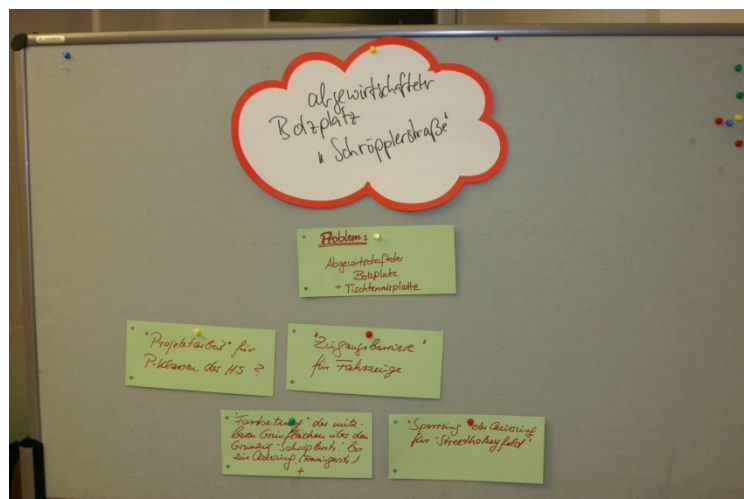 abgewirtschafteter
Bolzplatz
"Schröpplerstraße"
Problem:
Abgewirtschafteter
Bolzplatz
+ Tischtennisplatte
"Projektarbeit" für
P-Klassen der HS ?
"Zugangsbarriere"
für Fahrzeuge
"Fortsetzung" der nutz-
baren Grünflächen über den
Grünzug "Schröplerstr." bis
zur Querung
+
"Sperrung" der Querung
für "Streethockeyfeld"